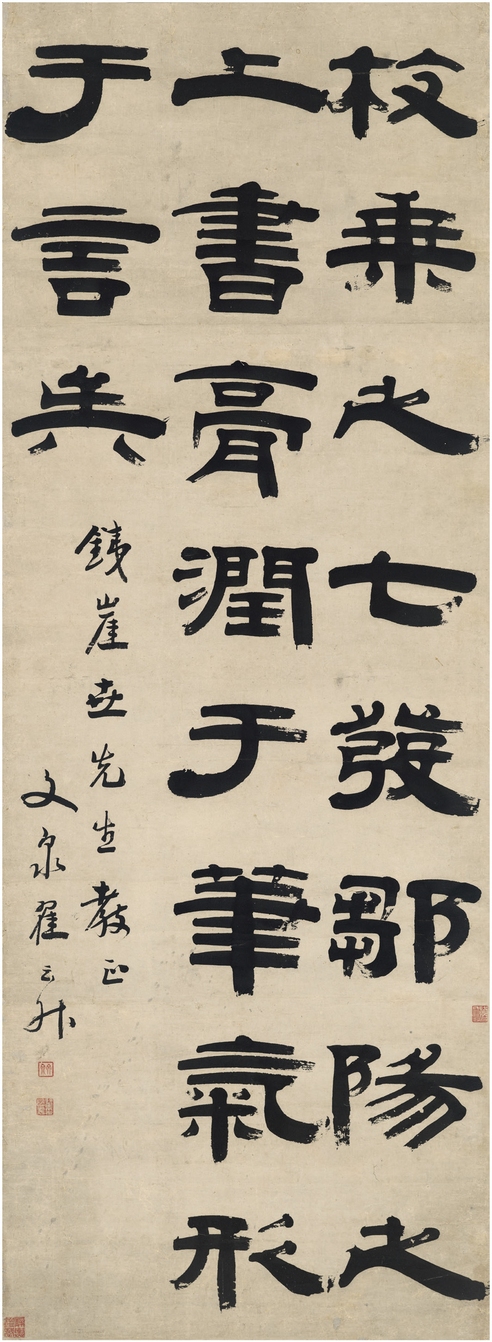 枚乗之七發鄒陽之
上書膏潤于筆氣形
于言矣
銕崖世先生教正
文泉翟云升